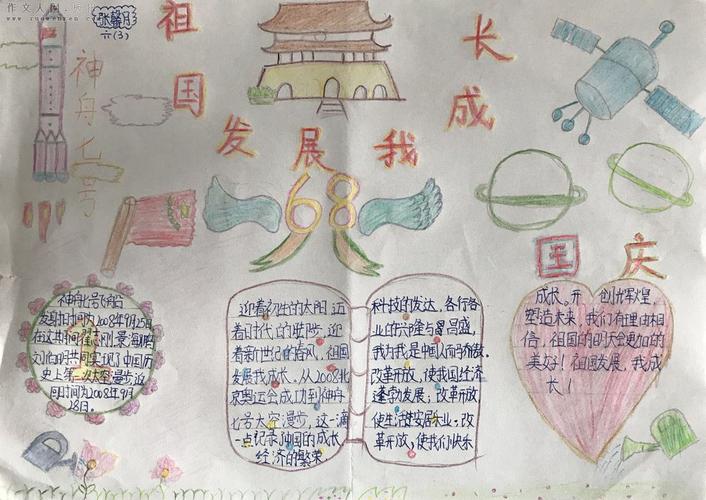 作文人网
www.zuowenren.com
张馨月
六(3)
祖国发展我成长
神舟七号
68
国庆
神舟七号飞船
发射时间为2008年9月25日
在这其间翟志刚,景海鹏
刘伯明共同实现了中国历
史上第一次太空漫步返
回时间为2008年9月
28日。
迎着初生的太阳,迈
着时代的脚步,迎
着新世纪的春风,祖国
发展我成长。从2008北
京奥运会成功到神舟
七号太空漫步,这一滴
一点记录祖国的成长
经济的繁荣。
科技的发达,各行各
业的兴隆与昌盛。
我为我是中国人而骄傲。
改革开放,使我国经济
蓬勃发展;改革开放
使生活安居乐业。改
革开放,使我们快乐
成长。开 创辉煌,
塑造未来,我们有理由相
信,祖国的明天会更加的
美好!祖国发展,我成
长!